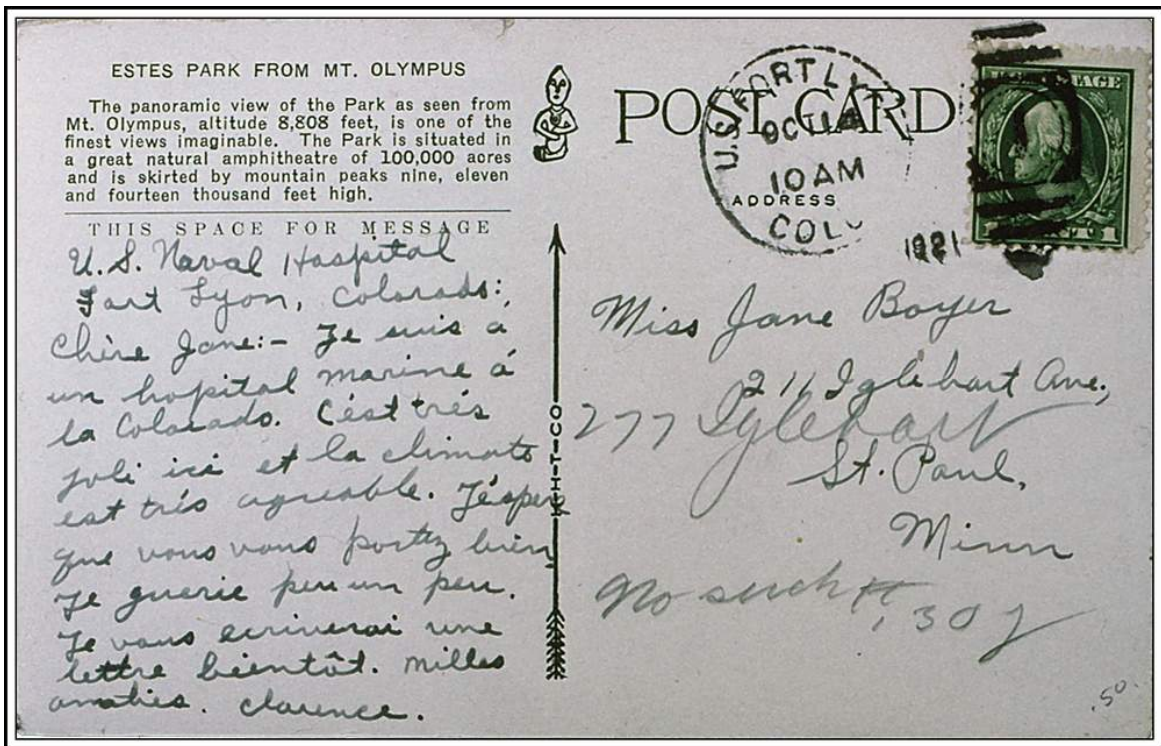 ESTES PARK FROM MT. OLYMPUS
The panoramic view of the Park as seen from
Mt. Olympus, altitude 8,808 feet, is one of the
finest views imaginable. The Park is situated in
a great natural amphitheatre of 100,000 acres
and is skirted by mountain peaks nine, eleven
and fourteen thousand feet high.
THIS SPACE FOR MESSAGE
U. S. Naval Hospital
Fort Lyon, Colorado:,
Chère Jane:- Je suis a
un hopital marine á
la Colorado. C'est trés
joli ici et la climate
est trés agreable. J'éspere
que vous vous portez bien
Je guerie peu un peu.
Je vous ecriverai une
lettre bientôt. Milles
amaties. Clarence.
OC-T-IK
POST CARD
U.S. FORT LY
OCT 14
10 AM
COLO
1921
ADDRESS
U.S. POSTAGE
1 CENT 1
Miss Jane Boyer
211 Iglehart Ave,
277 Iglehart
St. Paul,
Minn
No such #, 307
.50